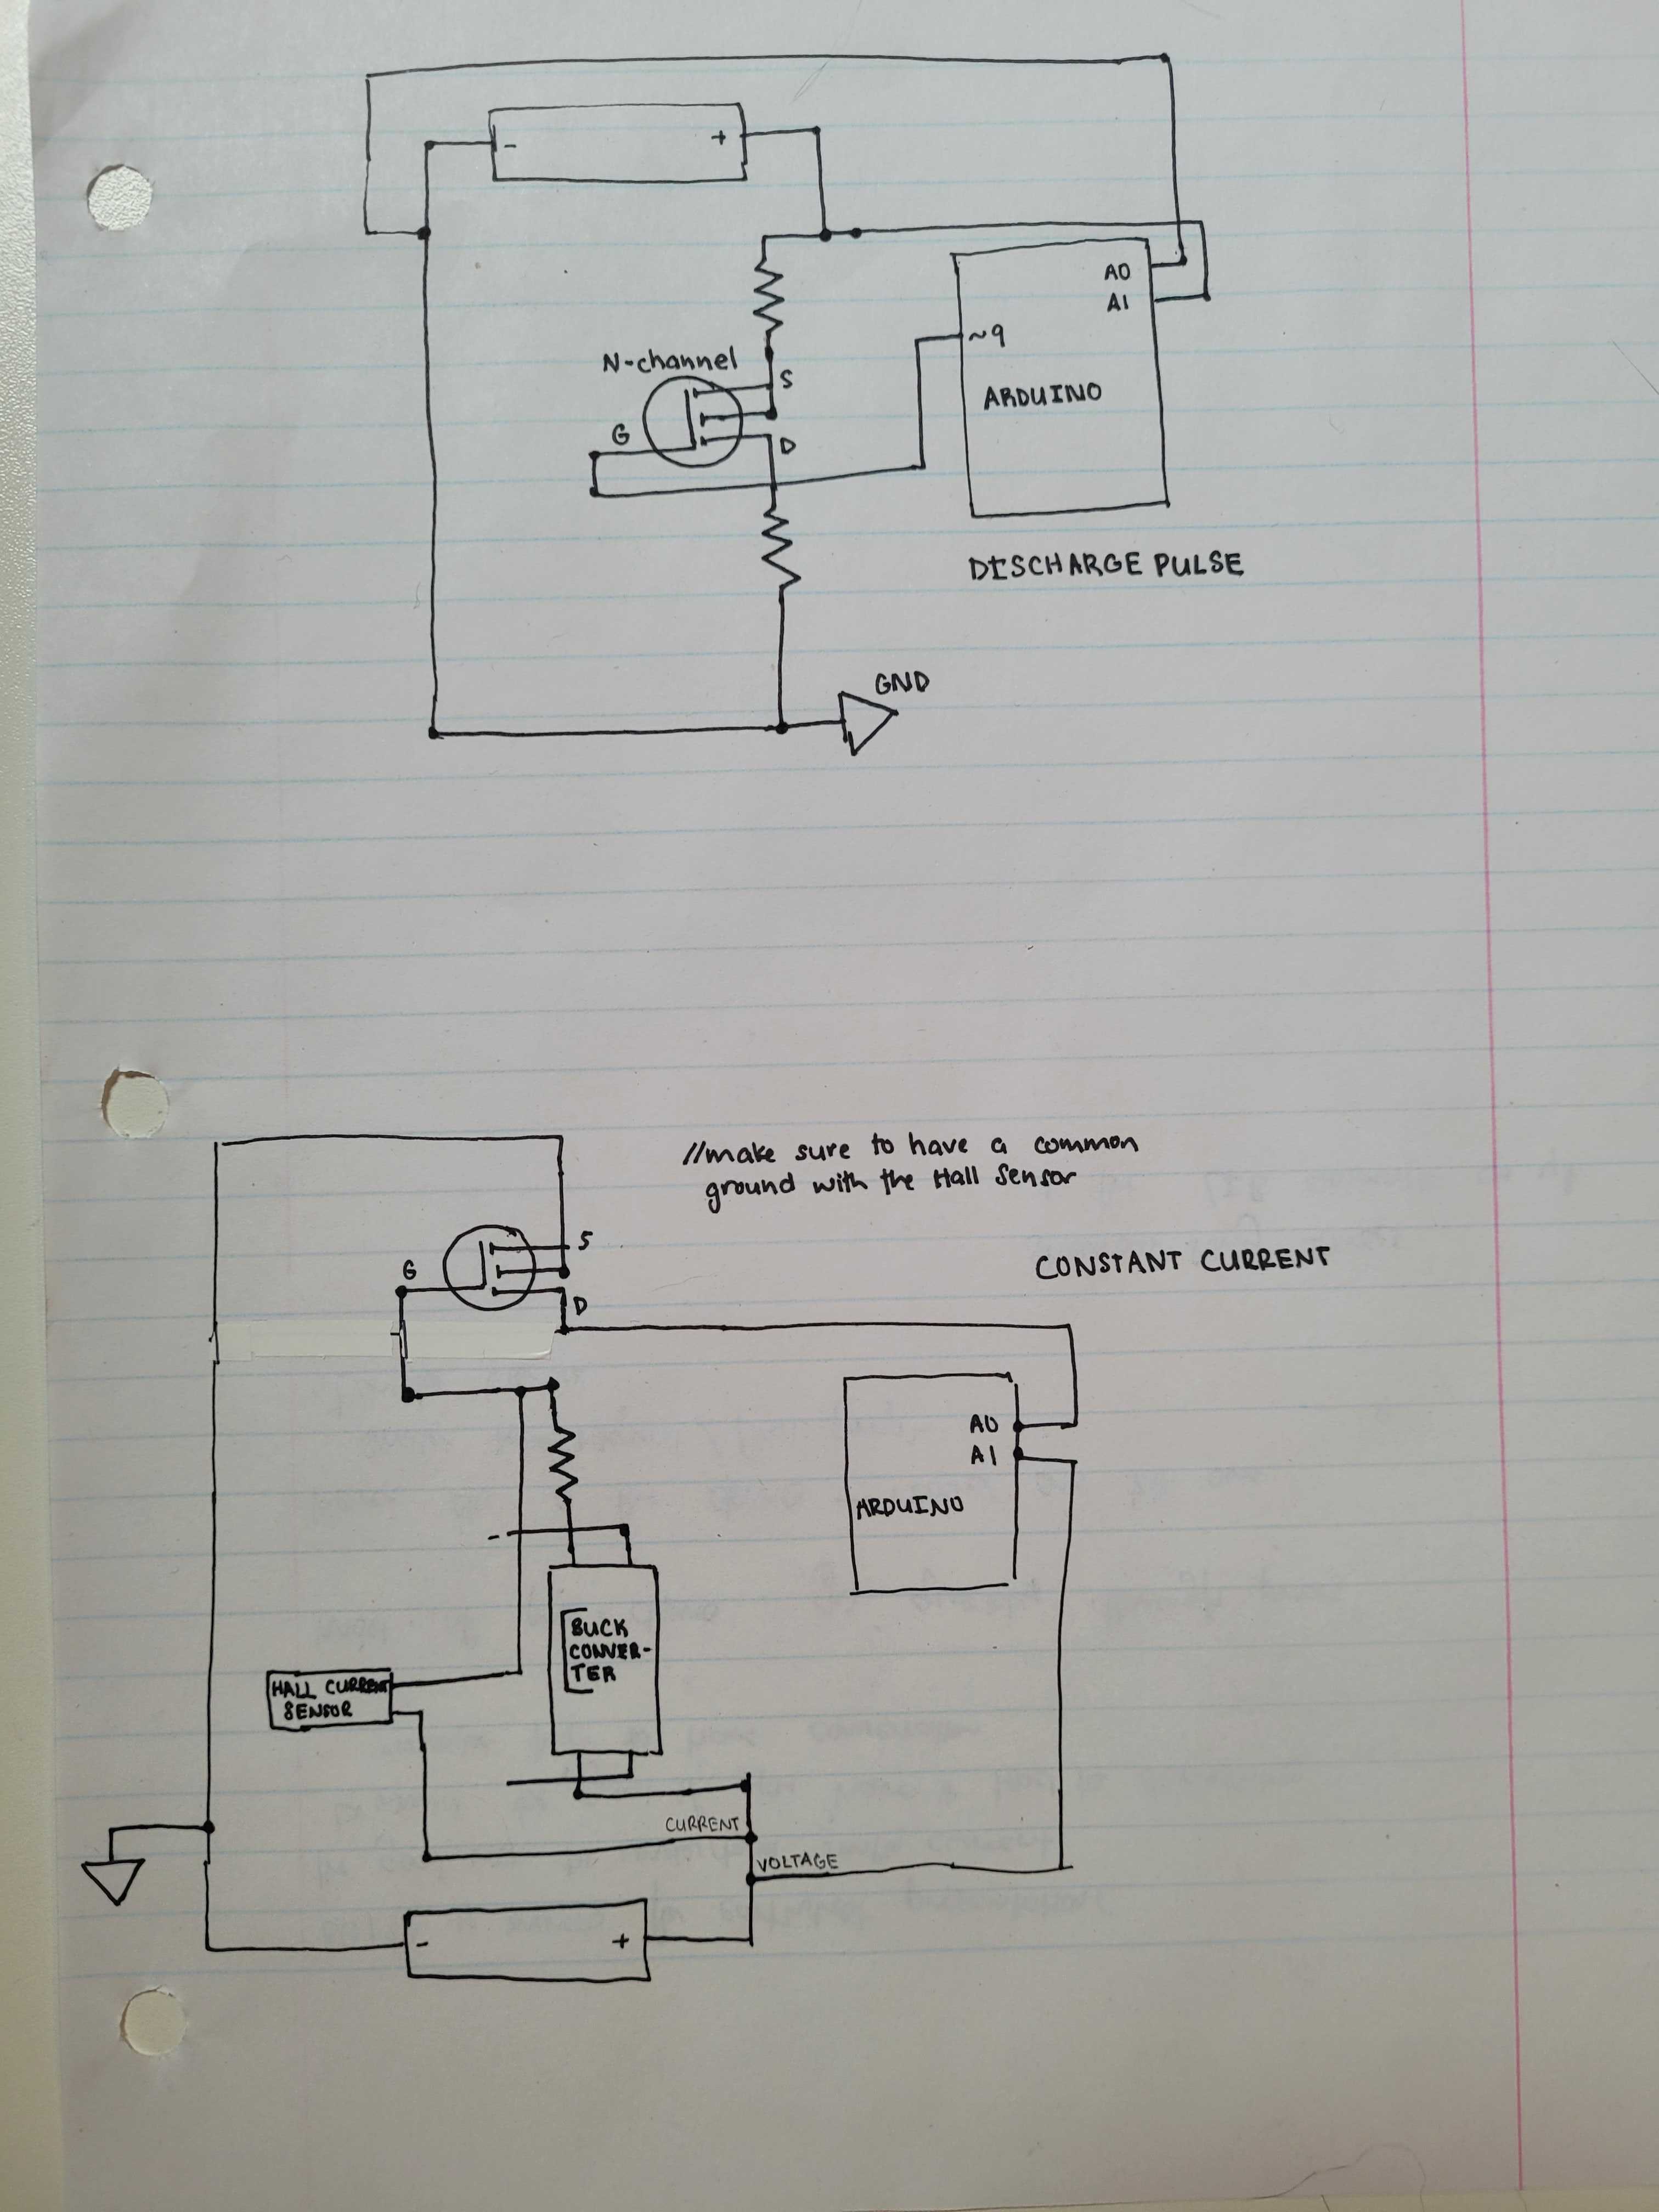 -
+
A0
A1
~9
N-channel
S
G
D
ARDUINO
DISCHARGE PULSE
GND
//make sure to have a common
ground with the Hall Sensor
S
G
D
CONSTANT CURRENT
A0
A1
ARDUINO
-
BUCK
CONVER-
TER
HALL CURRENT
SENSOR
CURRENT
VOLTAGE
-
+